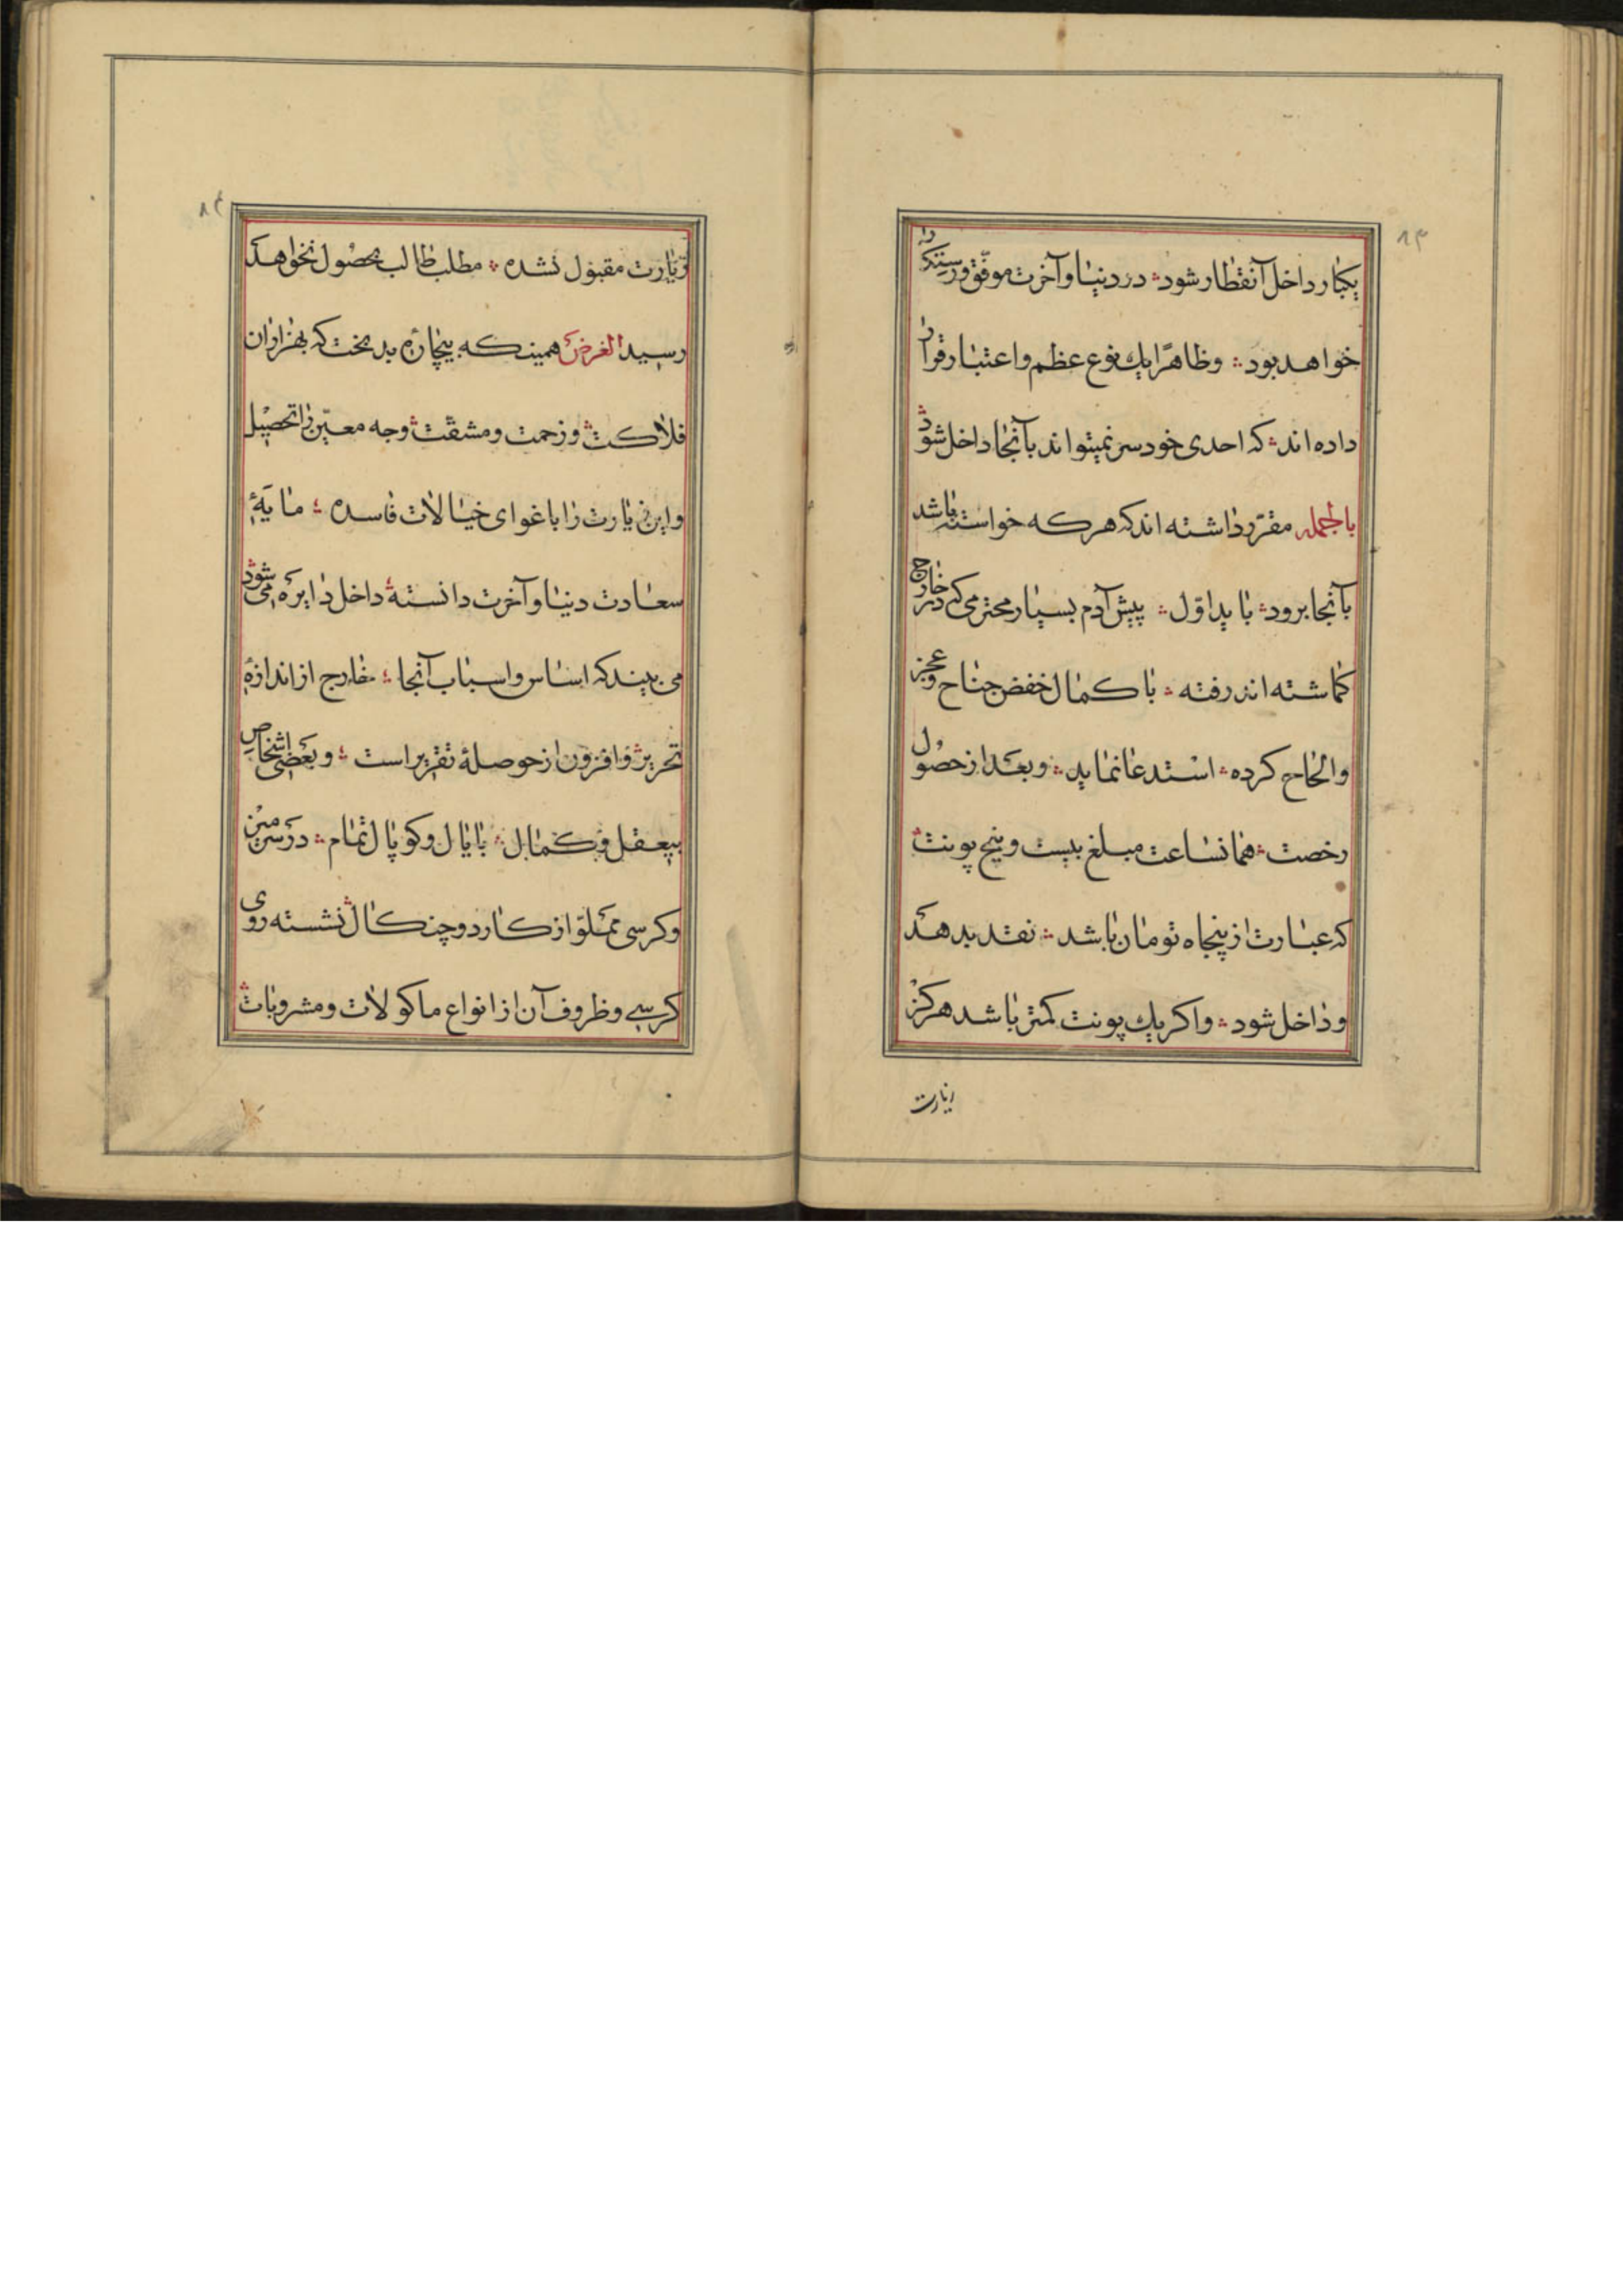 ۸۳
یکبار داخل آنقطار شود؞ در دنیا و آخرت موفّق و رستکار
خواهد بود؞ وظاهرًا یك نوع عظم و اعتبار قرار
داده اند؞ که احدی خودسر نمیتواند بآنجا داخل شود
باجمله مقرّر داشته اند که هرکه خواسته باشد
بآنجا برود؞ باید اوّل؞ پیش آدم بسیار محترمی که در خارج
کماشته اند رفته؞ با کمال خفض جناح و عجز
والحاح کرده؞ استدعا نماید؞ و بعد از حصول
رخصت؞ همانساعت مبلغ بیست و پنج پونت
که عبارت از پنجاه تومان باشد؞ نقد بدهد
و داخل شود؞ واکر یك پونت کمتر باشد هرکز
زیارت
۸۴
زیارت مقبول نشده؞ مطلب طالب بحصول نخواهد
رسید الغرض همینکه بیچارهٔ بدبخت که بهزاران
فلاکت و زحمت و مشقت وجه معیّن را تحصیل
و این زیارت را باغوای خیالات فاسده؞ مایهٔ
سعادت دنیا و آخرت دانسته داخل دایره می شود
می بیند که اساس و اسباب آنجا؞ خارج از اندازهٔ
تحریر و افزون از حوصلهٔ تقریر است؞ و بعضی اشخاص
بیعقل و کمال؞ با یال و کوپال تمام؞ در سر میز
و کرسی مملوّ از کارد و چنکال نشسته روی
کرسی و ظروف آن از انواع ماکولات و مشروبات